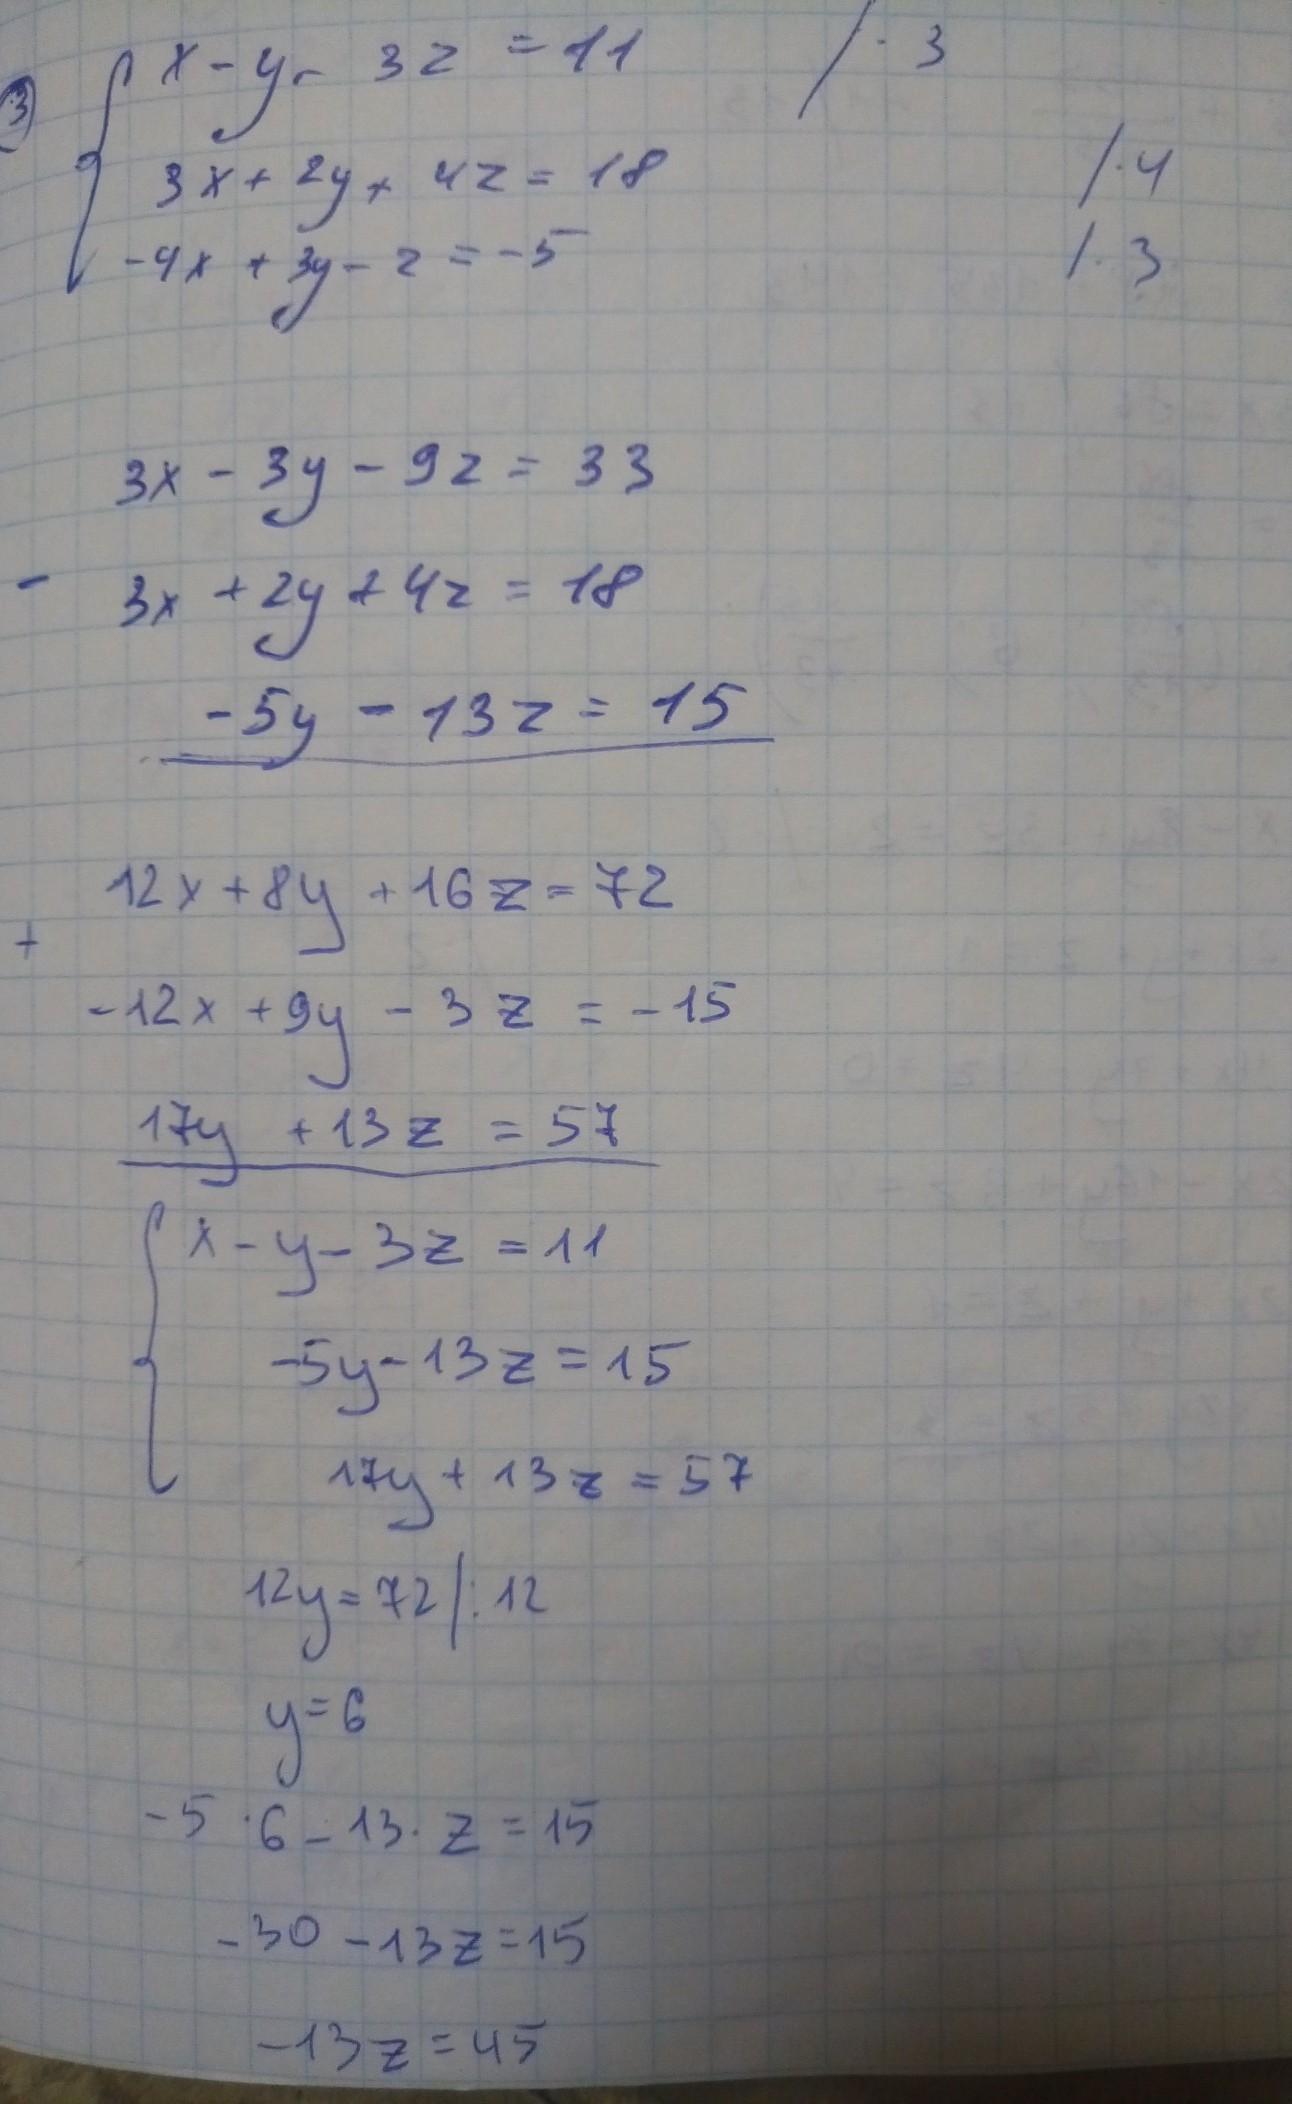 3 x - y - 3z = 11 / · 3
3x + 2y + 4z = 18 / · 4
-4x + 3y - z = -5 / · 3
3x - 3y - 9z = 33
- 3x + 2y + 4z = 18
-5y - 13z = 15
12x + 8y + 16z = 72
+
-12x + 9y - 3z = -15
17y + 13z = 57
x - y - 3z = 11
-5y - 13z = 15
17y + 13z = 57
12y = 72 / : 12
y = 6
-5 · 6 - 13 · z = 15
-30 - 13z = 15
-13z = 45